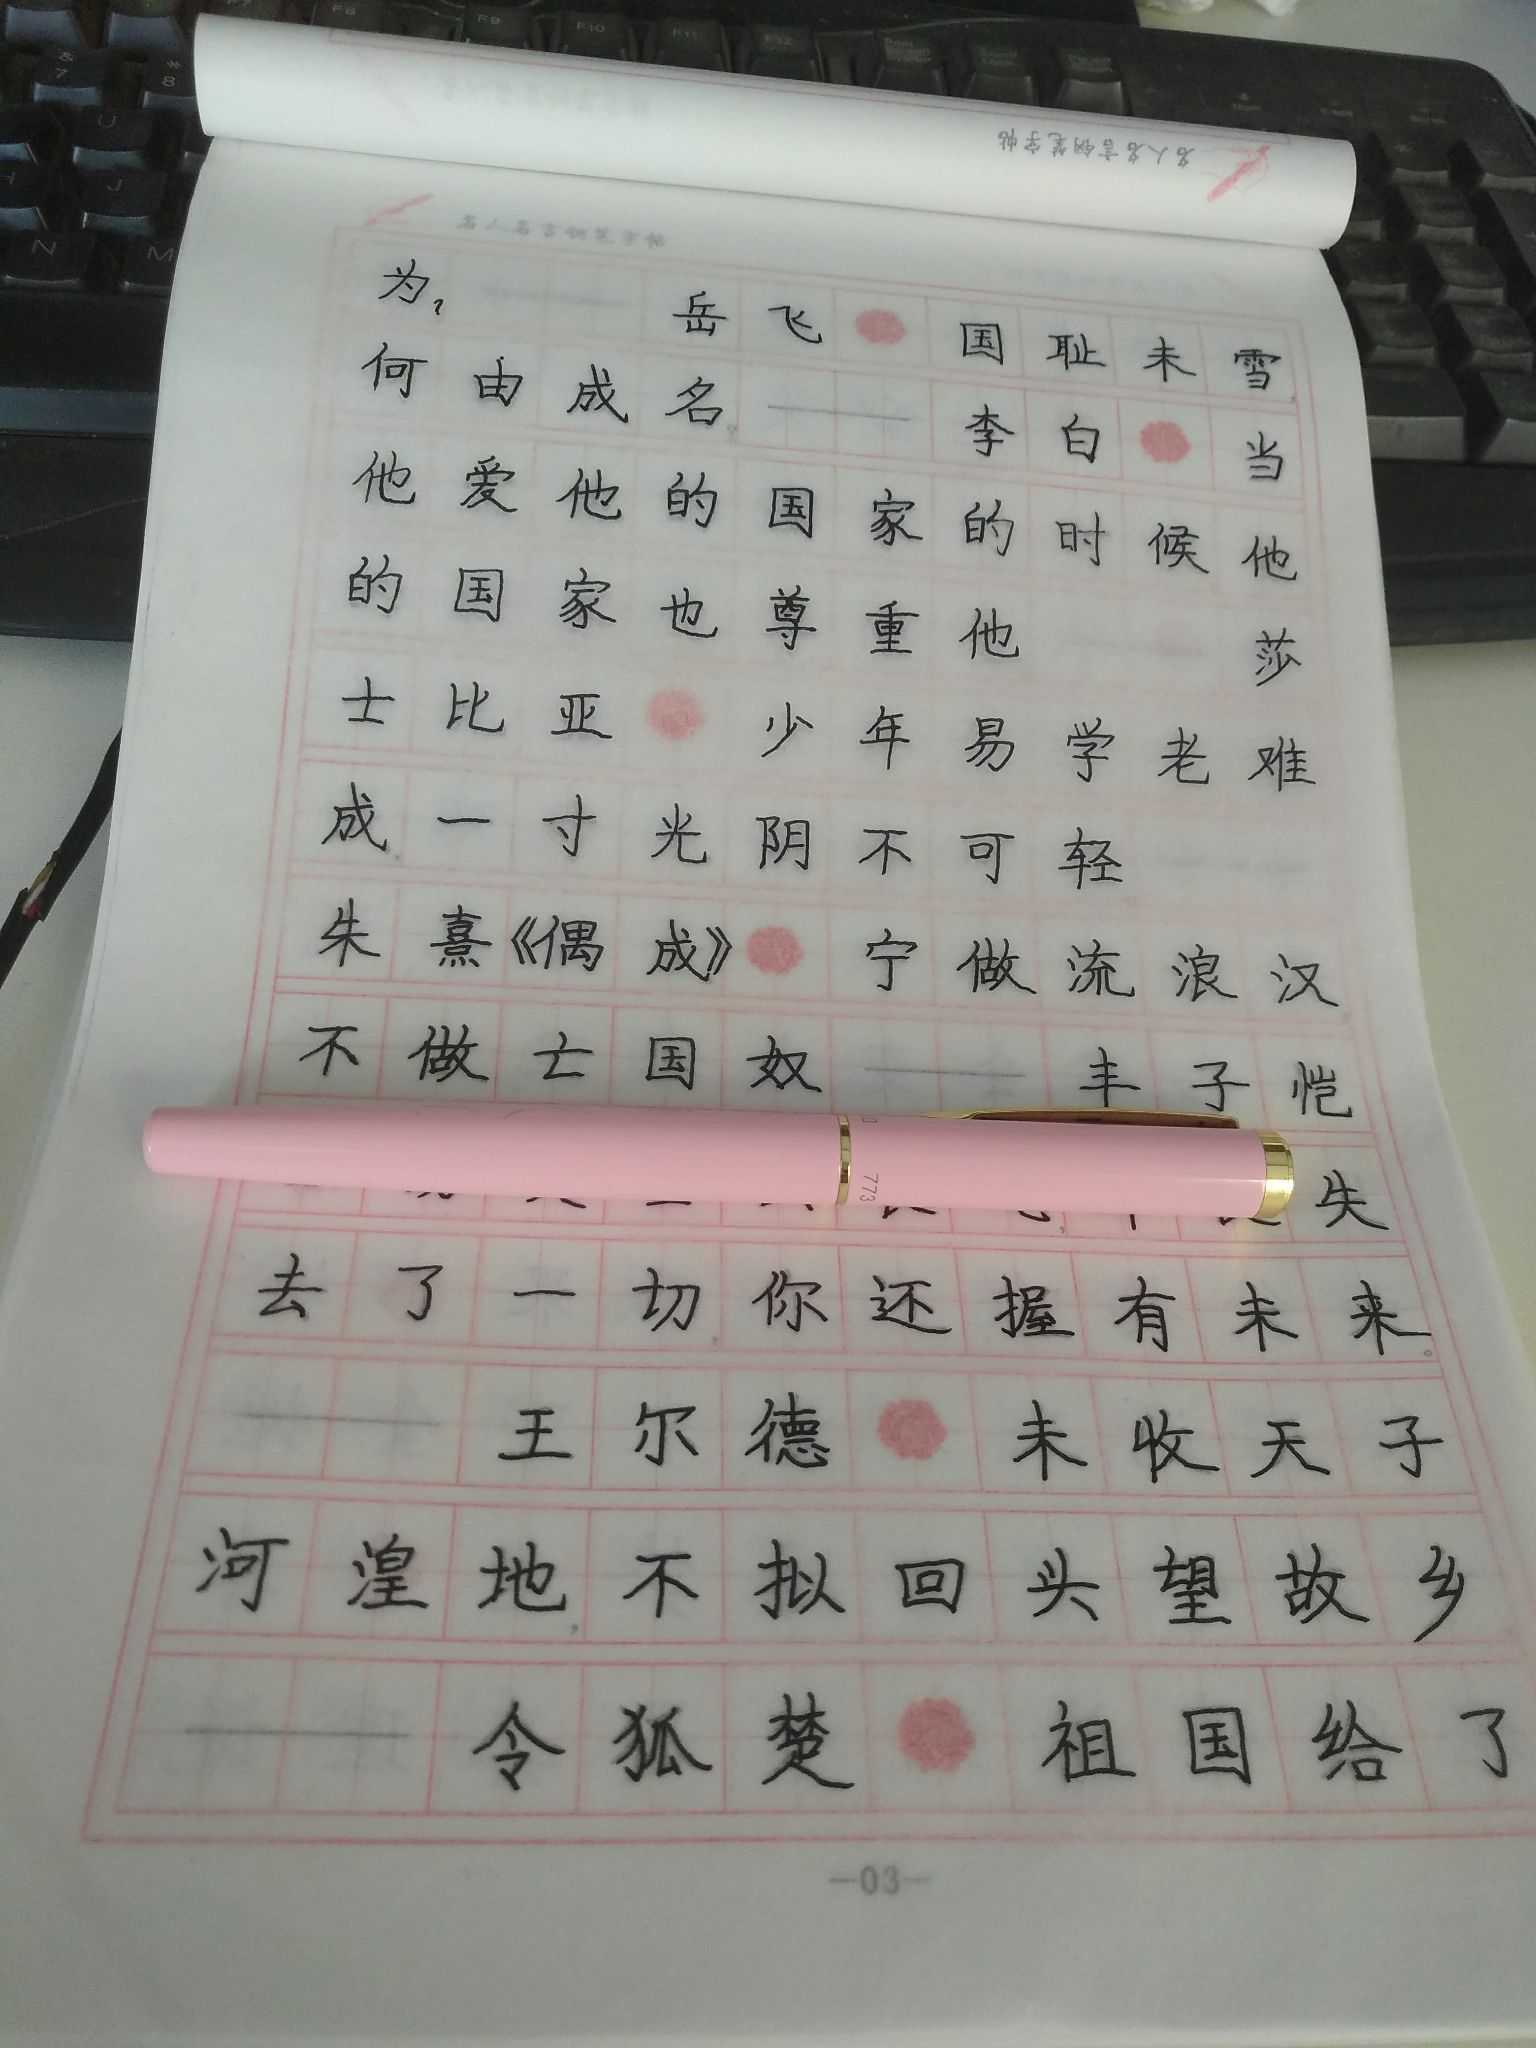 名人名言钢笔字帖
为, 岳飞 国耻未雪
何由成名。—— 李白 当
他爱他的国家的时候他
的国家也尊重他 莎
士比亚 少年易学老难
成一寸光阴不可轻
朱熹《偶成》 宁做流浪汉
不做亡国奴—— 丰子恺
失
去了一切你还握有未来。
—— 王尔德 未收天子
河湟地,不拟回头望故乡
—— 令狐楚 祖国给了
—03—
773